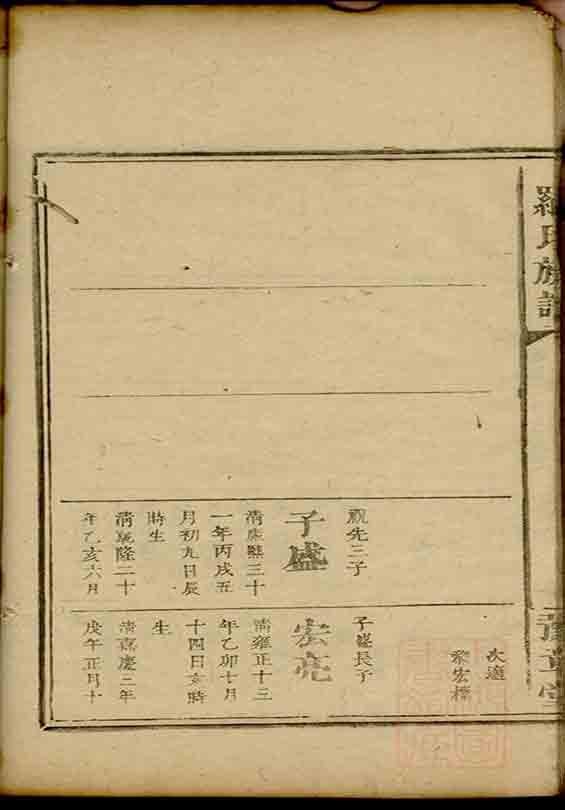 羅氏族譜
豫章堂
先三子
子盛
清康熙三十
一年丙戌五
月初九日辰
時生
清乾隆二十
年乙亥六月
次適
黎宏標
子盛長子
宏亮
清雍正十三
年乙卯七月
十四日亥時
生
清嘉慶三年
戊午正月十